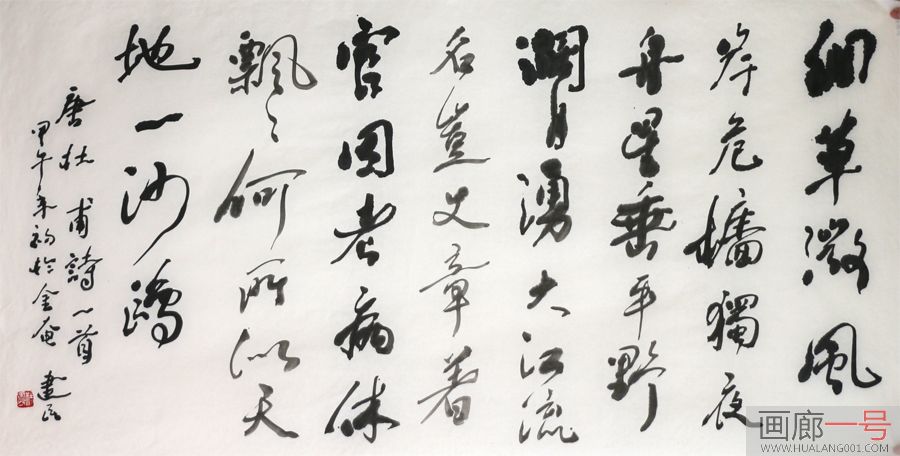 細草微風
岸危檣獨夜
舟星垂平野
濶月湧大江流
名豈文章著
官因老病休
飄〻何所似天
地一沙鷗
唐杜甫詩一首
甲午年初於金庵
画廊一号
WWW.HUALANG001.COM